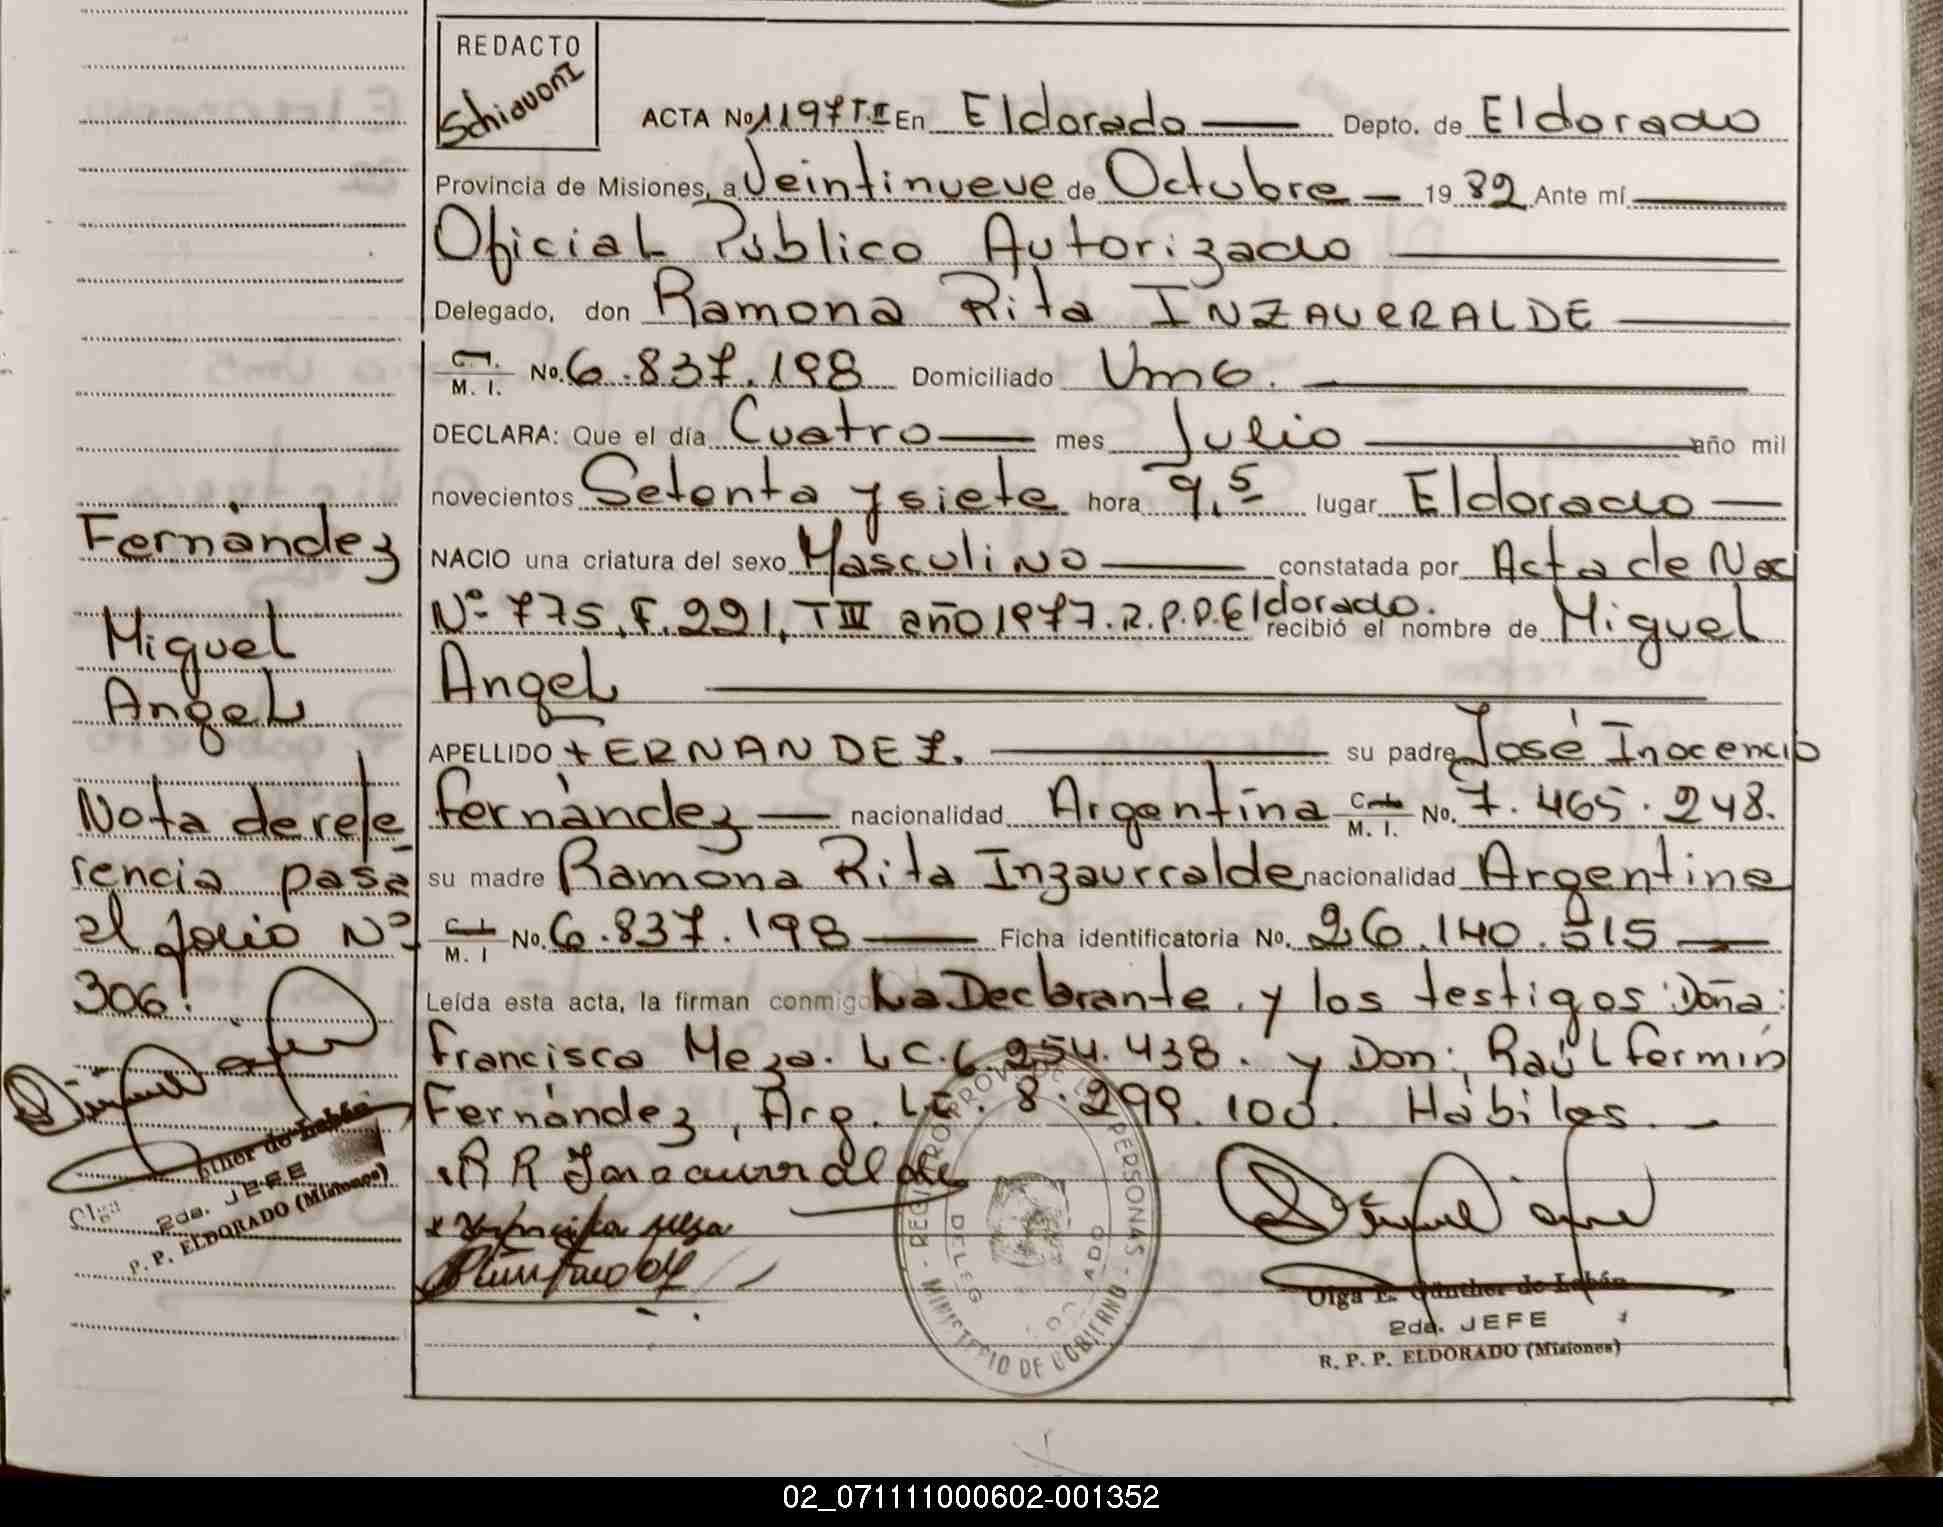 REDACTO
Schiavoni
ACTA No 1197 T.II En Eldorado Depto. de Eldorado
Provincia de Misiones, a Veintinueve de Octubre 1982 Ante mí
Oficial Público Autorizado
Delegado, don Ramona Rita INZAURRALDE
M. I. No. 6.837.198 Domiciliado Umo.
DECLARA: Que el día Cuatro mes Julio año mil
novecientos Setenta y siete hora 9,5 lugar Eldorado
NACIO una criatura del sexo Masculino constatada por Acta de Nac
Nº 775, F. 221, T III año 1977. R.P.P. Eldorado. recibió el nombre de Miguel
Angel
APELLIDO FERNANDEZ. su padre José Inocencio
Fernández nacionalidad Argentina M. I. No. 7.465.248.
su madre Ramona Rita Inzaurralde nacionalidad Argentina
M. I No. 6.837.198 Ficha identificatoria No. 26.140.515
Leída esta acta, la firman conmigo La Declarante y los testigos Doña:
Francisca Meza. L C. 6.254.438. y Don: Raúl Fermín
Fernández, Arg. L.E. 8.299.100. Hábiles.
R R Inzaurralde
Francisca Meza
Olga E. Günther de
2da. JEFE
R. P. P. ELDORADO (Misiones)
REGISTRO PROVINCIAL DE LAS PERSONAS - MINISTERIO DE GOBIERNO
Fernández
Miguel
Angel
Nota de refe
rencia pasa
al folio Nº
306!
Olga
2da. JEFE
P. P. ELDORADO (Misiones)
02_071111000602-001352